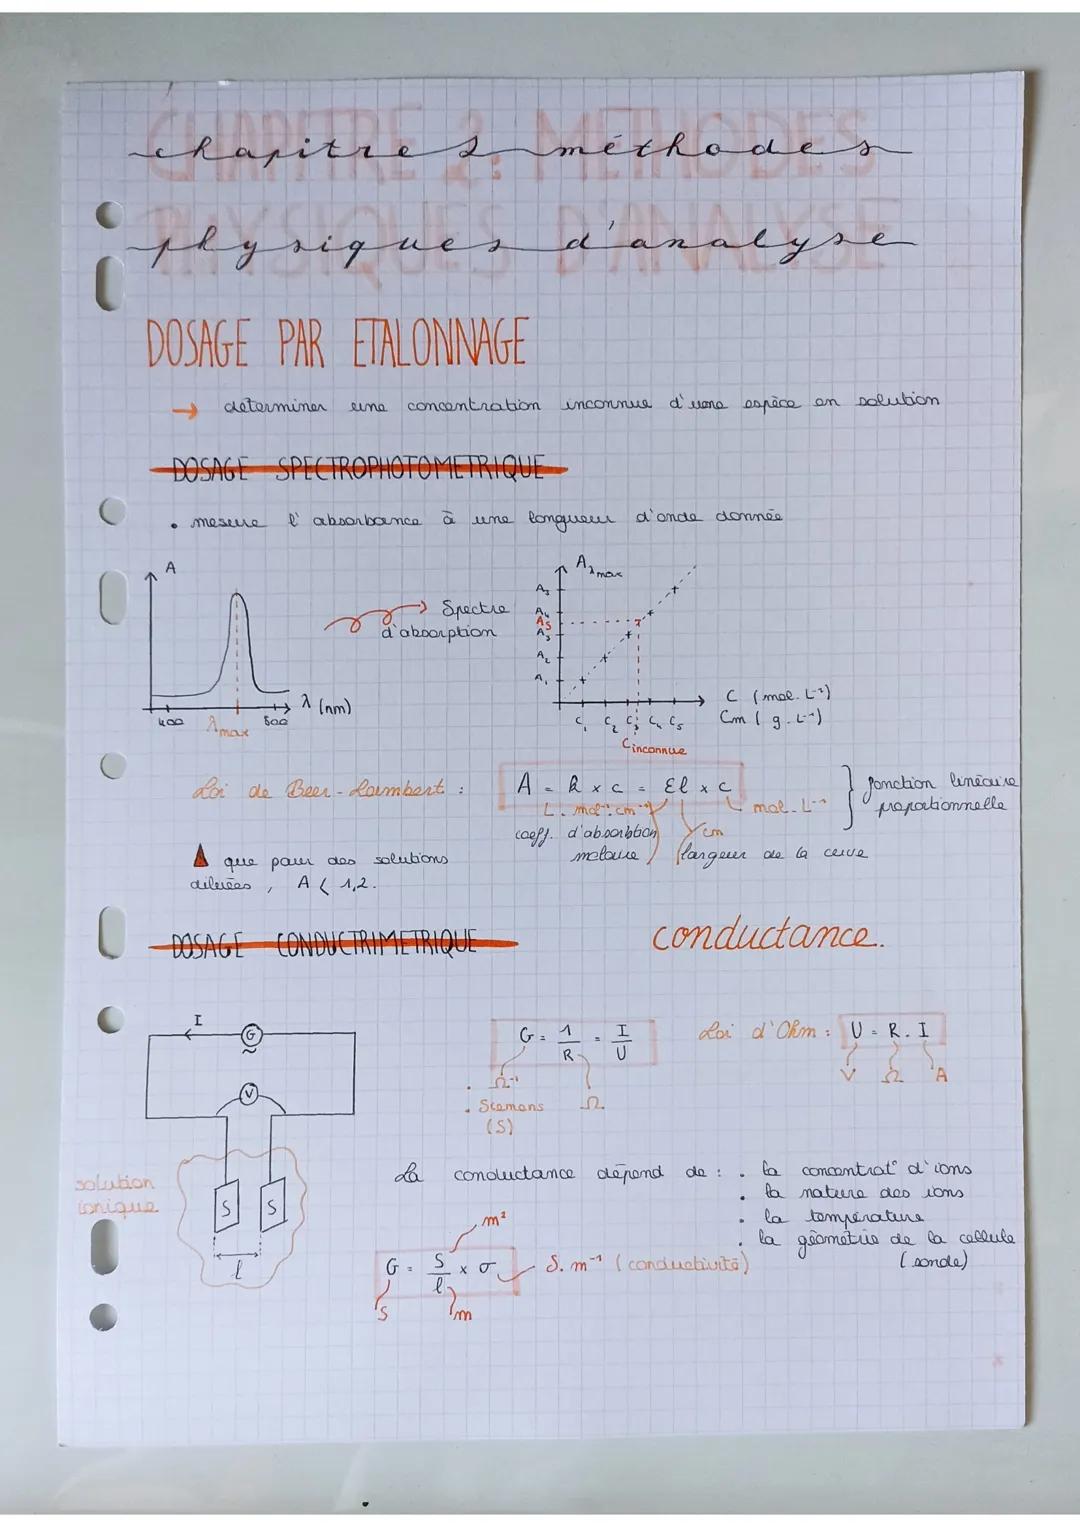 chapitre 2 méthodes
physiques d'analyse
DOSAGE PAR ETALONNAGE
→ determiner une concentration inconnue d'une espèce en solution
DOSAGE SPECTROPHOTOMETRIQUE
• mesure l'absorbance à une longueur d'onde donnée
A
400
λmax
800
λ (nm)
Spectre
d'absorption
Aλmax
A5
A4
AS
A3
A2
A1
C1 C2 C3 C4 C5
C inconnue
C (mol.L⁻¹)
Cm (g.L⁻¹)
Loi de Beer-Lambert :
A = k x c = εl x c
L.mol⁻¹.cm⁻¹
mol.L⁻¹
fonction linéaire
proportionnelle
coeff. d'absorbtion
molaire
cm
largeur de la cuve
que pour des solutions
diluées, A < 1,2.
DOSAGE CONDUCTRIMETRIQUE
conductance.
I
G
V
solution
ionique
S S
l
G = 1/R = I/U
• Ω⁻¹
• Siemens
(S)
Ω
Loi d'Ohm : U = R.I
V Ω A
La conductance dépend de : • la concentrat° d'ions
• la nature des ions
• la température
• la géométrie de la cellule
(sonde)
m²
G = S/l x σ
S.m⁻¹ (conductivité)
S
m